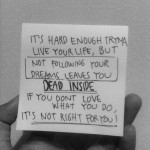 IT'S HARD ENOUGH TRYNA
LIVE YOUR LIFE, BUT
NOT FOLLOWING YOUR
DREAMS LEAVES YOU
DEAD INSIDE.
IF YOU DON'T LOVE
WHAT YOU DO,
IT'S NOT RIGHT FOR YOU!